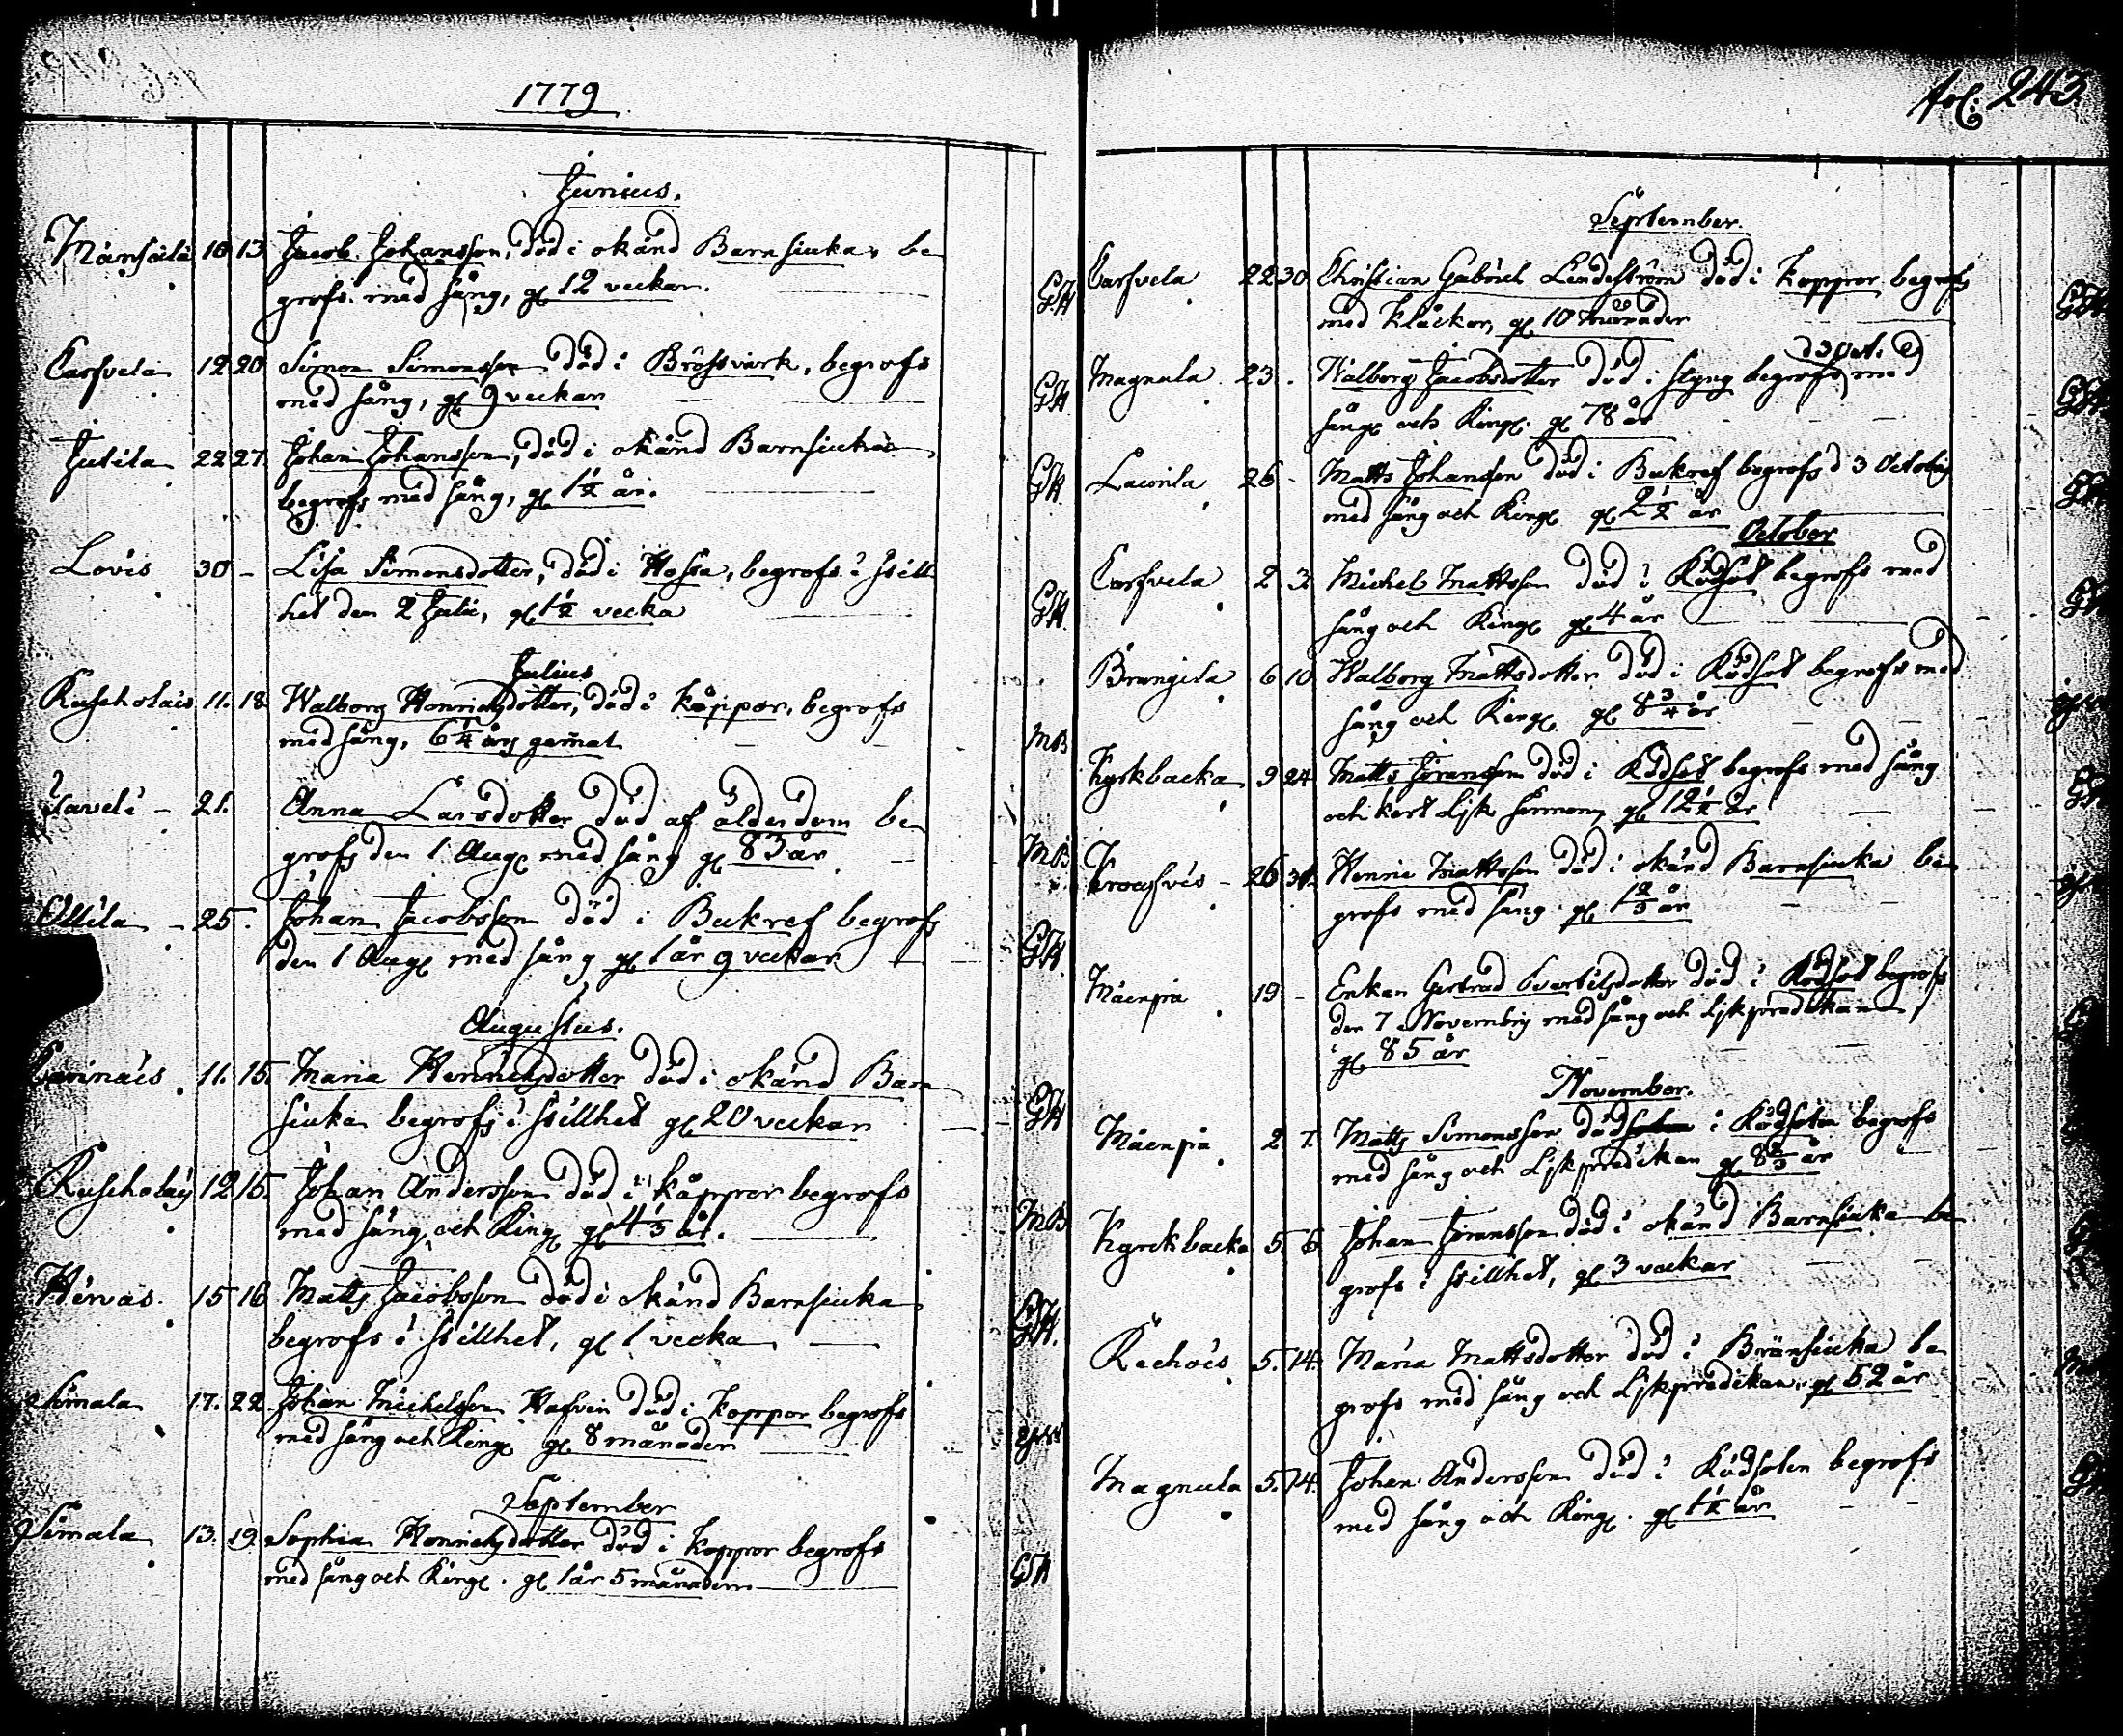 1779
Junius.
Månsala 10 13 Jacob Johansson, död i okänd Barnsiuka, be
grofs. med sång, gl 12 veckor. GH
Carfvela 12 20 Simon Simonsson död i Bröstvärk, begrofs
med sång, gl 9 veckor GH
Jutila 22 27 Johan Johansson, död i okänd Barnsiuka
begrofs med sång, gl 1½ år. GH
Lovis 30 - Lisa Simonsdotter, död i Hosta, begrofs i still
het den 2 Julii, gl 1½ vecka GH
Julius
11. 18 Walborg Henrichsdotter, död i koppor, begrofs
med sång, 6¼ års gamal MB
Saveli - 21. Anna Larsdotter död af ålderdom be
grofs den 1 Aug med sång gl 83 år MB
Ollila - 25. Johan Jacobsson död i Bukref begrofs
den 1 Aug med sång gl 1 år 9 veckor GH
Augustus.
11. 15. Maria Henrichsdotter död i okänd Barn
siuka begrofs i stillhet gl 20 veckor GH
12 15. Johan Andersson död i koppor begrofs
med sång och Ring gl 4⅓ år. MB
Hirvas. 15 16 Matts Jacobsson död i okänd Barnsiuka
begrofs i stillhet, gl 1 vecka GH.
Simala 17. 22 Johan Michelsson Hafvin död i koppor begrofs
med sång och Ring gl 8 månader
September
Simala 13. 19. Sophia Henrichsdotter död i koppor begrofs
med sång och Ring. gl 1 år 5 månader GH
fol: 243.
September.
Carfvela 22 30 Christian Gabriel Lindeström död i koppor begrofs
med klåckor, gl 10 månader
d 3 Oct.
Magnula 23. Walborg Jacobsdotter död i styng begrofs med
sång och Ring. gl 78 år
Lacoila 26 - Matts Johansson död i Bukref begrofs d 3 Octobris
med sång och Ring gl 2½ år
October
Carfvela 2 3. Michel Mattsson död i Rödsot begrofs med
sång och Ring gl 4 år
Brangila 6 10 Walborg Mattsdotter död i Rödsot begrofs med
sång och Ring gl 8¾ år
Kyrkbacka 9 24 Matts Göransson död i Rödsot begrofs med sång
och kort Lijk sermon, gl 12½ år
26 31. Henric Mattsson död i okänd Barnsiuka be
grofs med sång gl 1⅔ år
Mäenpä 19 - Enkan Gertrud Bertilsdotter död i Rödsot begrofs
den 7 Novembris med sång och Lijkprädikan
gl 85 år
November.
Mäenpä 2 7. Matts Simonsson död i Rödsoten begrofs
med sång och Lijkprädikan gl 8⅔ år
Kyrckbacka 5. 6 Johan Göransson död i okänd Barnsiuka be
grofs i stillhet, gl 3 veckor
5. 14. Maria Mattsdotter död i Bränsiuka be
grofs med sång och Lijkprädikan. gl 52 år
Magnula 5. 14. Johan Andersson död i Rödsoten begrofs
med sång och Ring. gl 1½ år